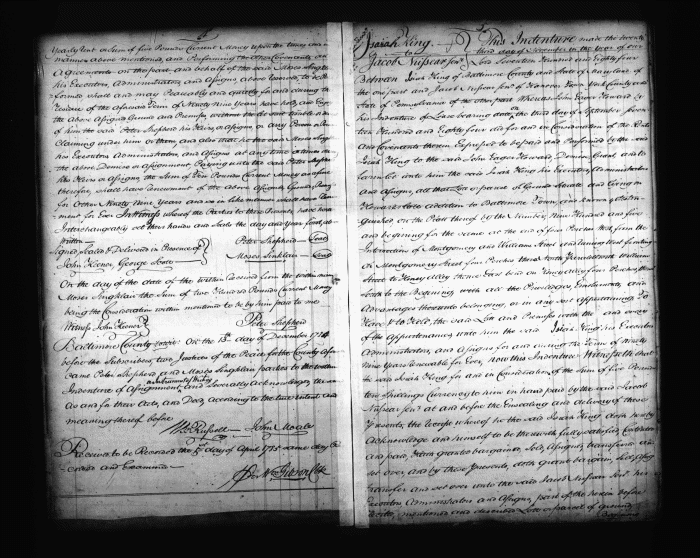 Yearly Rent or Sum of five Pounds Current Money upon the times and in
manner above mentioned, and Performing the other Covenants and
Agreements on the part and behalf of the said Moses
his Executors, Administrators and Assigns above
formed shall and may Peaceably and quietly for and during the
residue of the aforesaid Term of Ninety Nine Years have hold and
the above Assigned Ground and Premises, without the
of him the said Peter Shepherd his Heirs or Assigns or any Person
Claiming under him or them and also that he the said Moses
his Executors, Administrators, and Assigns at any time
the above Demise or Assignment Paying unto the said Peter
his Heirs or Assigns the Sum of Ten Pounds Current Money
therefor, shall have Renewment of the above Assigned Ground
for Other Ninety Nine Years and in like manner
ment for Ever In Witness whereof the Parties to these Presents have
Interchangeably set their hands and Seals the day and Year first
written
Signed Sealed & Delivered in Presence of
John Keener George
Peter Shepherd Seal
Moses Seal
On the day of the date of the within Received from the within named
Moses the Sum of two Hundred Pounds Current Money
being the Consideration within mentioned to be by him paid to me
Witness John Keener
Peter Shepherd
Baltimore County On the 13th day of December 1784
before the Subscribers, two Justices of the Peace for the County
came Peter Shepherd and Moses parties to the within
Indenture of Assignment and Severally Acknowledged
as and for their Acts, and Deed, according to the true intent and
meaning thereof before
Russell John Moale
Received to be Recorded the 5th day of April 1785 same day
corded and Examined
Gibson Clk
Isaiah King
to
Jacob
This Indenture made the twenty
third day of November in the year of our
Lord Seventeen Hundred and Eighty four
Between Isaiah King of Baltimore County and State of Maryland of
the one part and Jacob of Town York County and
State of Pennsylvania of the other part Whereas John Eager Howard by
his Indenture of Lease bearing date the third day of September Seven-
teen Hundred and Eighty four did for and in Consideration of the Rents
and Covenants therein Expressed to be paid and Performed by the said
Isaiah King to the said John Eager Howard, Demise Grant and to
farm let unto him the said Isaiah King his Executors, Administrators
and Assigns, all that Lot or parcel of Ground Situate and lying in
Howards late Addition to Baltimore Town, and known & Distin-
guished on the Platt thereof by the Number, Nine Hundred and five
and beginning for the same at the end of five Perches West from the
Intersection of Montgomery and William Street and running thence fronting
on Montgomery Street four Perches thence North with William
Street to Henry alley thence East bound on Henry alley four Perches thence
South to the Beginning with all the Priviledges, Emoluments, and
Advantages thereunto belonging, or in any wise appertaining To
Have & to Hold, the said Lot and Premises with the and every
of the Appurtenances unto him the said Isaiah King his Executors
Administrators, and Assigns for and during the Term of ninety
Nine Years Renewable for Ever, Now this Indenture Witnesseth that
the said Isaiah King for and in Consideration of the Sum of five Pounds
ten Shillings Currency to him in hand paid by the said Jacob
at and before the Ensealing and delivery of these
Presents, the receipt whereof he the said Isaiah King doth hereby
Acknowledge and himself to be therewith fully satisfied, Contented
and paid, Hath granted bargained, Sold, Assigned, transferred and
set over, and by these Presents, doth grant bargain, Sell, Assign
transfer and set over unto the said Jacob his
Executors, Administrators and Assigns, part of the herein before
mentioned and described Lot or parcel of ground